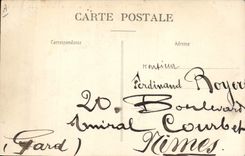 CARTE POSTALE
Correspondance
Adresse
Monsieur
Ferdinand Royer
20. Boulevard
Amiral Courbet
(Gard) Nîmes